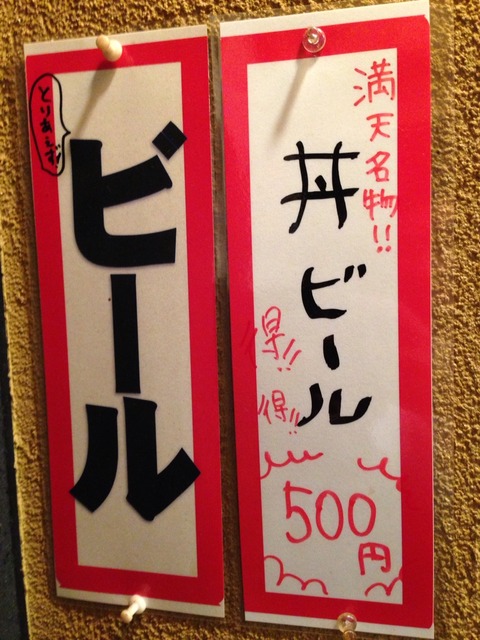 とりあえず
ビール
満天名物!!
丼ビール
得!!
得!!
500円